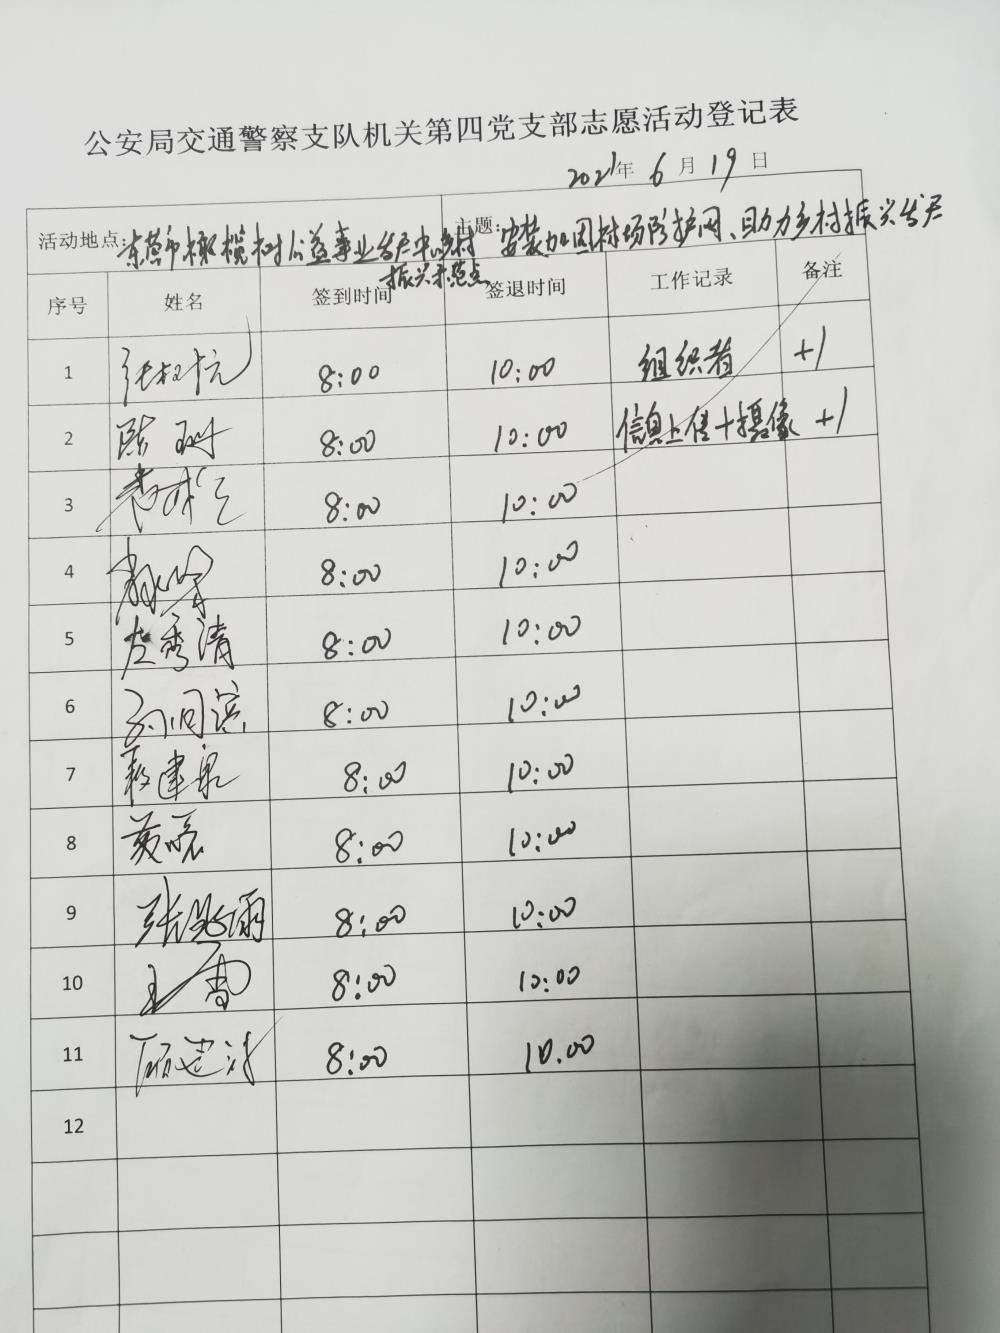 公安局交通警察支队机关第四党支部志愿活动登记表
2021年 6 月 19 日
活动地点：东营市橄榄树公益事业发展中心乡村振兴示范点 主题：安装加固村场防护网、助力乡村振兴发展
序号 姓名 签到时间 签退时间 工作记录 备注
1 8:00 10:00 组织者 +1
2 陈珊 8:00 10:00 信息上传+摄像 +1
3 8:00 10:00
4 8:00 10:00
5 左秀清 8:00 10:00
6 8:00 10:00
7 8:00 10:00
8 8:00 10:00
9 8:00 10:00
10 8:00 10:00
11 8:00 10.00
12